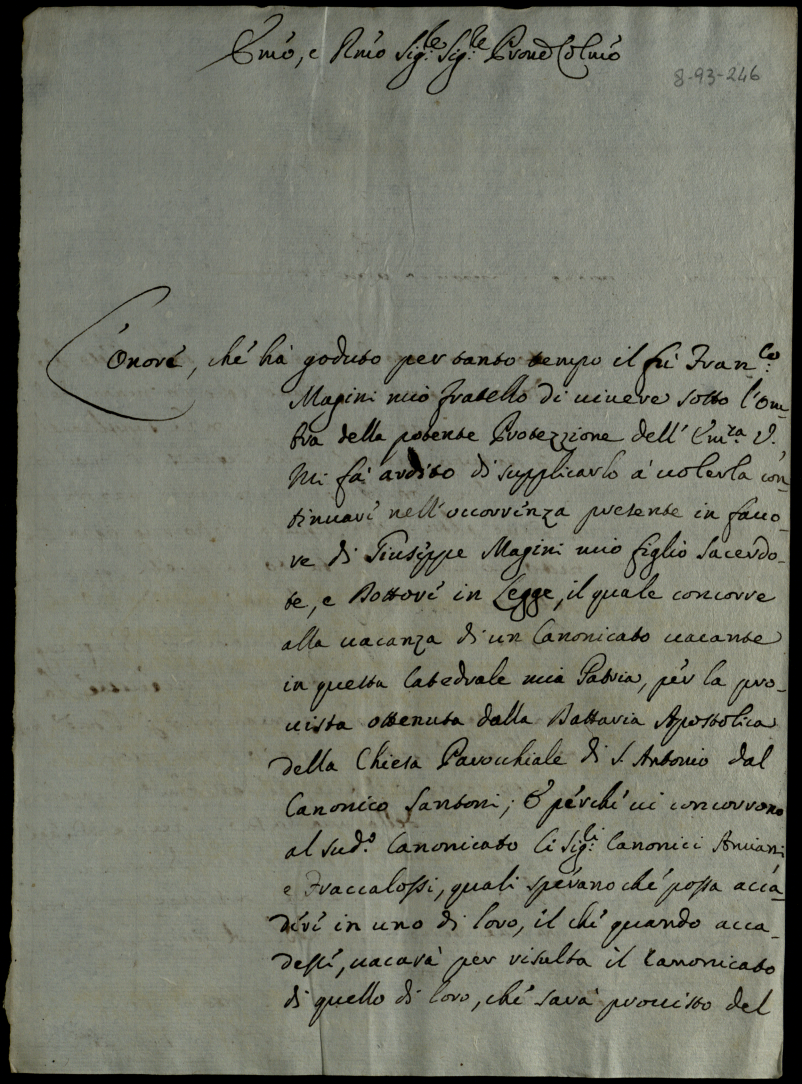 Emo, e Rmo Sig.le Sig.le Prone Colmo
8-93-246
L'onore, che hà goduto per tanto tempo il fù Fran.co
Magini mio fratello di uiuere sotto l'om-
bra della potente Protezzione dell' Em.za V.
mi fà ardito di supplicarlo à uolerla con-
tinuare nell'occorrenza presente in fauo-
re di Giuseppe Magini mio figlio Sacerdo-
te, e Dottore in Legge, il quale concorre
alla uacanza di un Canonicato uacante
in questa Catedrale mia Patria, per la pro-
uista ottenuta dalla Dattaria Apostolica
della Chiesa Parocchiale di S. Antonio dal
Canonico Santoni; E perche ui concorrono
al sud.o Canonicato li Sig.li Canonici Amiani
e Fraccalossi, quali sperano che possa acca-
dere in uno di loro, il che quando acca-
desse, uacarà per risulta il Canonicato
di quello di loro, che sarà prouisto del